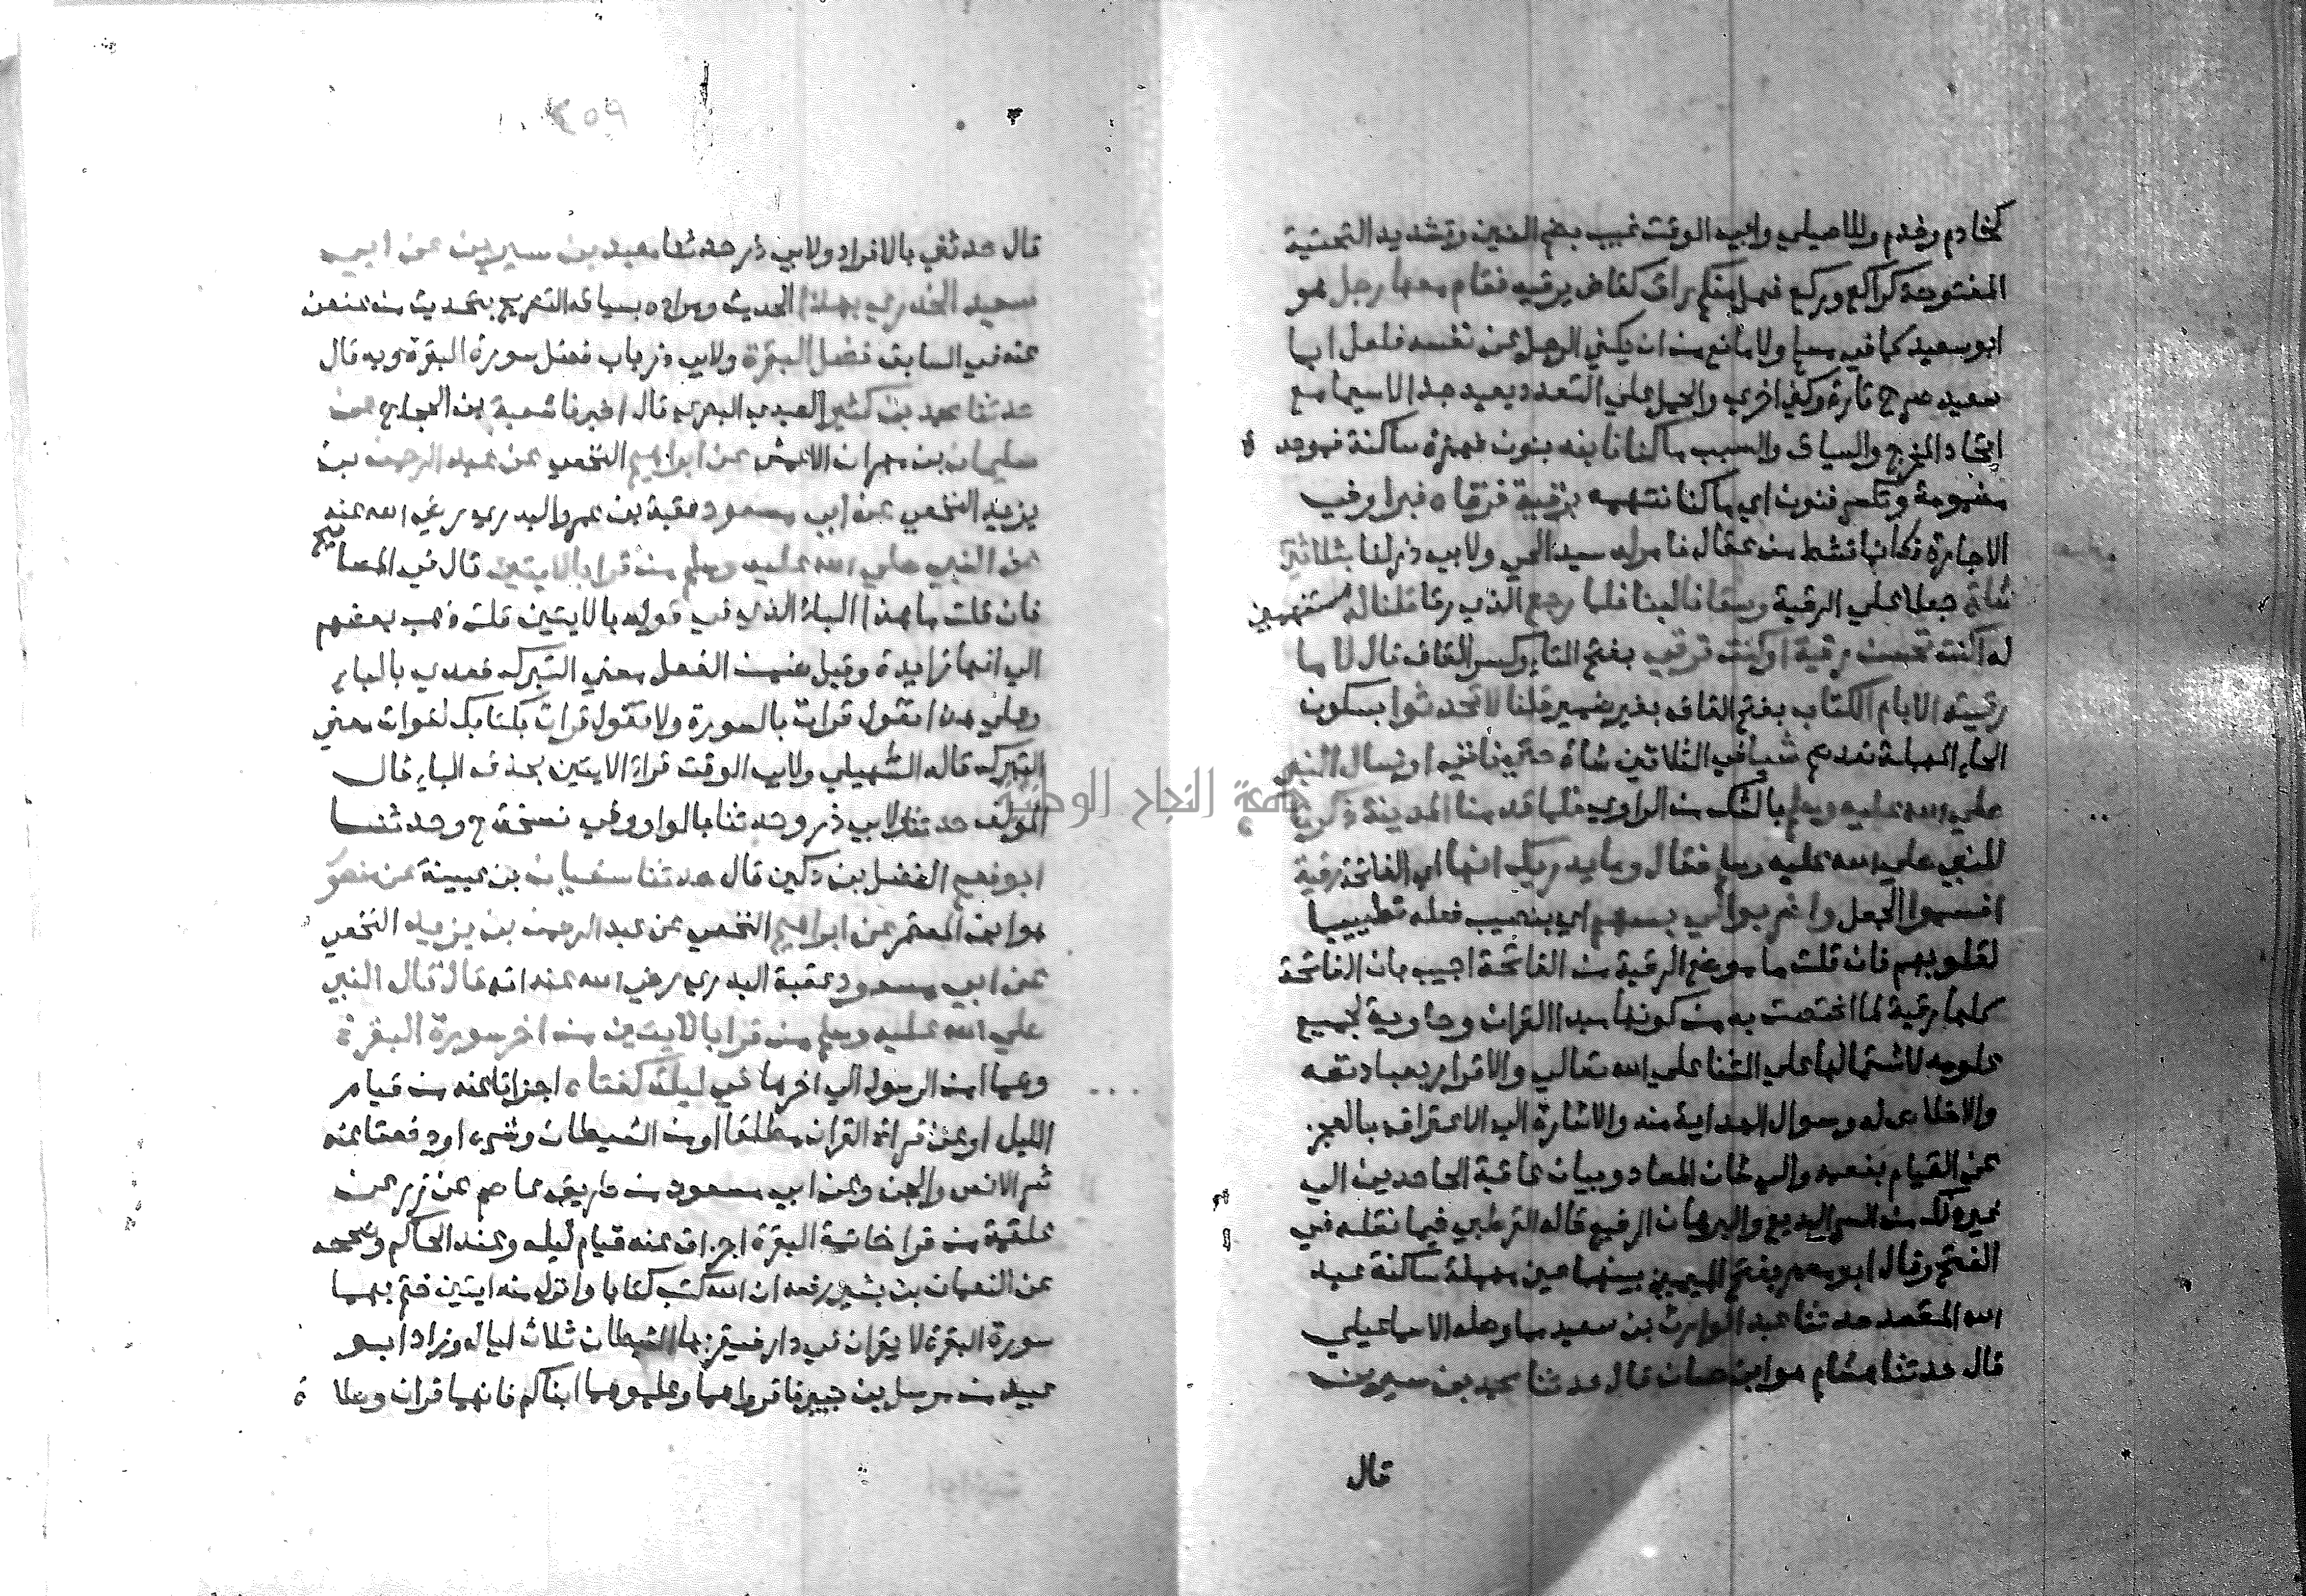 كخادم وخدم وللاصيلي وابي الوقت غيب بضم الغين وتشديد التحتية
المفتوحة كراكع وركع فهل منكم راق كقاض يرقيه فقام معها رجل هو
ابو سعيد كما في مسلم ولا مانع من ان يكني الرجل عن نفسه فلعل ابا
سعيد صرح تارة وكني اخري والحمل علي التعدد بعيد جدا لاسيما مع
اتحاد المخرج والسياق والسبب ما كنا نابنه بنون فهمزة ساكنة فموحدة
مضمومة وتكسر فنون اي ما كنا نتهمه برقية فرقاه فبرا وفي
الاجارة فكانما نشط من عقال فامر له سيد الحي ولابي ذر لنا بثلاثين
شاة جعلا علي الرقية وسقانا لبنا فلما رجع الذي رقا قلنا له مستفهمين
له اكنت تحسن رقية او كنت ترقي بفتح التاء وكسر القاف قال لا ما
رقيته الا بام الكتاب بفتح القاف بغير ضمير قلنا لا تحدثوا بسكون
الحاء المهملة بعدهم شيا في الثلاثين شاة حتي ناتي او نسال النبي
صلي الله عليه وسلم بالشك من الراوي فلما قدمنا المدينة ذكرناه
للنبي صلي الله عليه وسلم فقال وما يدريك انها اي الفاتحة رقية
اقسموا الجعل واضربوا لي بسهم اي بنصيب فعله تطييبا
لقلوبهم فان قلت ما موضع الرقية من الفاتحة اجيب بان الفاتحة
كلها رقية لما اختصت به من كونها مبدا القران وحاوية لجميع
علومه لاشتمالها علي الثنا علي الله تعالي والاقرار بعبادته
والاخلاص له وسوال الهداية منه والاشارة الي الاعتراف بالعجز
عن القيام بنعمه والي شان المعاد وبيان عاقبة الجاحدين الي
غير ذلك من السر البديع والبرهان الرفيع قاله القرطبي فيما نقله في
الفتح وقال ابو معمر بفتح الميمين بينهما عين مهملة ساكنة عبد
الله المقعد حدثنا عبد الوارث بن سعيد مما وصله الاسماعيلي
قال حدثنا هشام هو ابن حسان قال حدثنا محمد بن سيرين
قال
٣٥٩
قال حدثني بالافراد ولابي ذر حدثنا معبد بن سيرين عن ابي
سعيد الخدري بهذا الحديث ومراده بسياقه التصريح بتحديث من عنعن
عنه في السابق فضل البقرة ولابي ذر باب فضل سورة البقرة وبه قال
حدثنا محمد بن كثير العبدي البصري قال اخبرنا شعبة بن الحجاج عن
سليمان بن مهران الاعمش عن ابراهيم النخعي عن عبد الرحمن بن
يزيد النخعي عن ابي مسعود عقبة بن عمرو البدري رضي الله عنه
عن النبي صلي الله عليه وسلم من قرا بالايتين قال في المصابيح
فان قلت ما هذا الباء الذي في قوله بالايتين قلت ذهب بعضهم
الي انها زايدة وقيل ضمن الفعل معني التبرك فعدي بالباء
وعلي هذا تقول قرات بالسورة ولا تقول قرات بكتابك لفوات معني
التبرك قاله السهيلي ولابي الوقت قراة الايتين بحذف الباء قال
المولف حدثنا ولابي ذر وحدثنا بالواو وفي نسخة ح وحدثنا
ابو نعيم الفضل بن دكين قال حدثنا سفيان بن عيينة عن منصور
هو ابن المعتمر عن ابراهيم النخعي عن عبد الرحمن بن يزيد النخعي
عن ابي مسعود عقبة البدري رضي الله عنه انه قال قال النبي
صلي الله عليه وسلم من قرا بالايتين من اخر سورة البقرة
وهما امن الرسول الي اخرها في ليلة كفتاه اجزاتا عنه من قيام
الليل او عن قراة القران مطلقا او من الشيطان وشره او دفعتا عنه
شر الانس والجن وعن ابي مسعود من طريق عاصم عن زر عن
علقمة من قرا خاتمة البقرة اجزات عنه قيام ليله وعند الحاكم وصححه
عن النعمان بن بشير رفعه ان الله كتب كتابا وانزل منه ايتين ختم بهما
سورة البقرة لا يقران في دار فيقربها الشيطان ثلاث ليال وزاد ابو
عبيد من مرسل بن جبير فاقرواهما وعلموهما ابناكم فانهما قران وصلاة
جامعة النجاح الوطنية